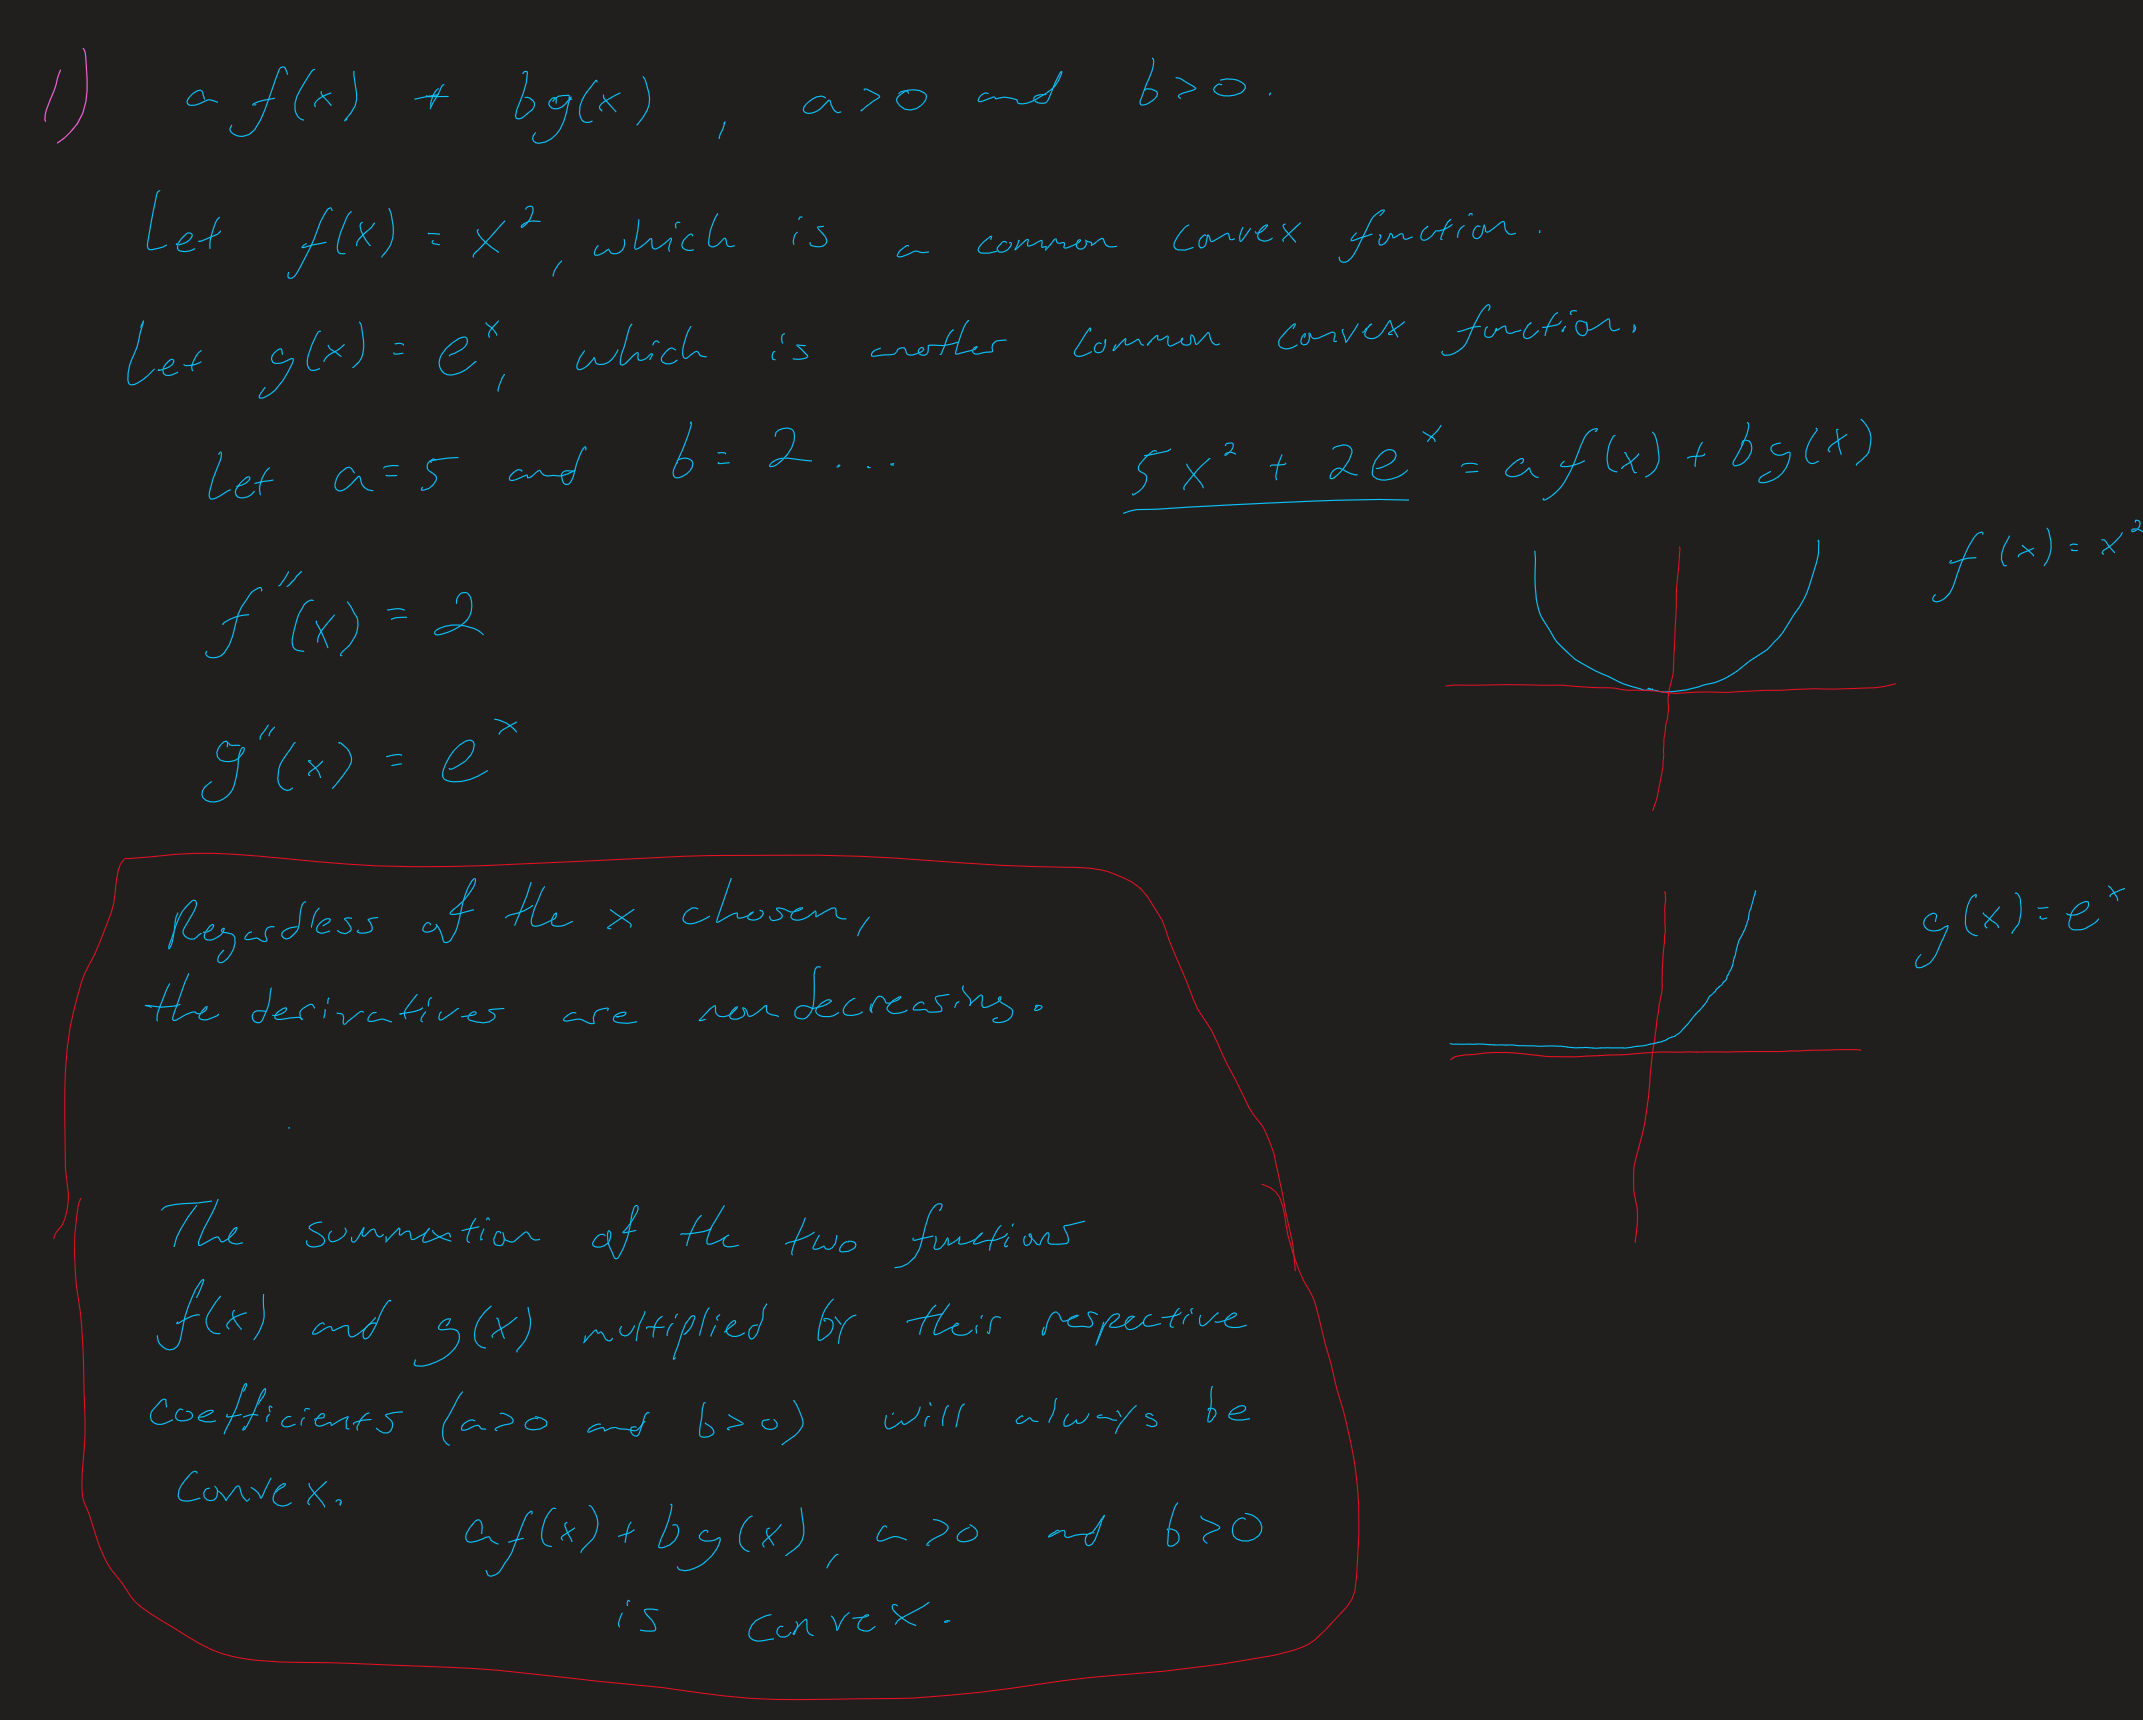 1) a f(x) + bg(x) , a>0 and b>0.
Let f(x) = x², which is a common convex function.
Let g(x) = eˣ, which is another common convex function.
Let a=5 and b=2... 5x² + 2eˣ = a f(x) + bg(x)
f(x) = x²
f''(x) = 2
g''(x) = eˣ
g(x) = eˣ
Regardless of the x chosen,
the derivatives are nondecreasing.
The summation of the two functions
f(x) and g(x) multiplied by their respective
coefficients (a>0 and b>0) will always be
convex.
af(x) + bg(x), a>0 and b>0
is convex.